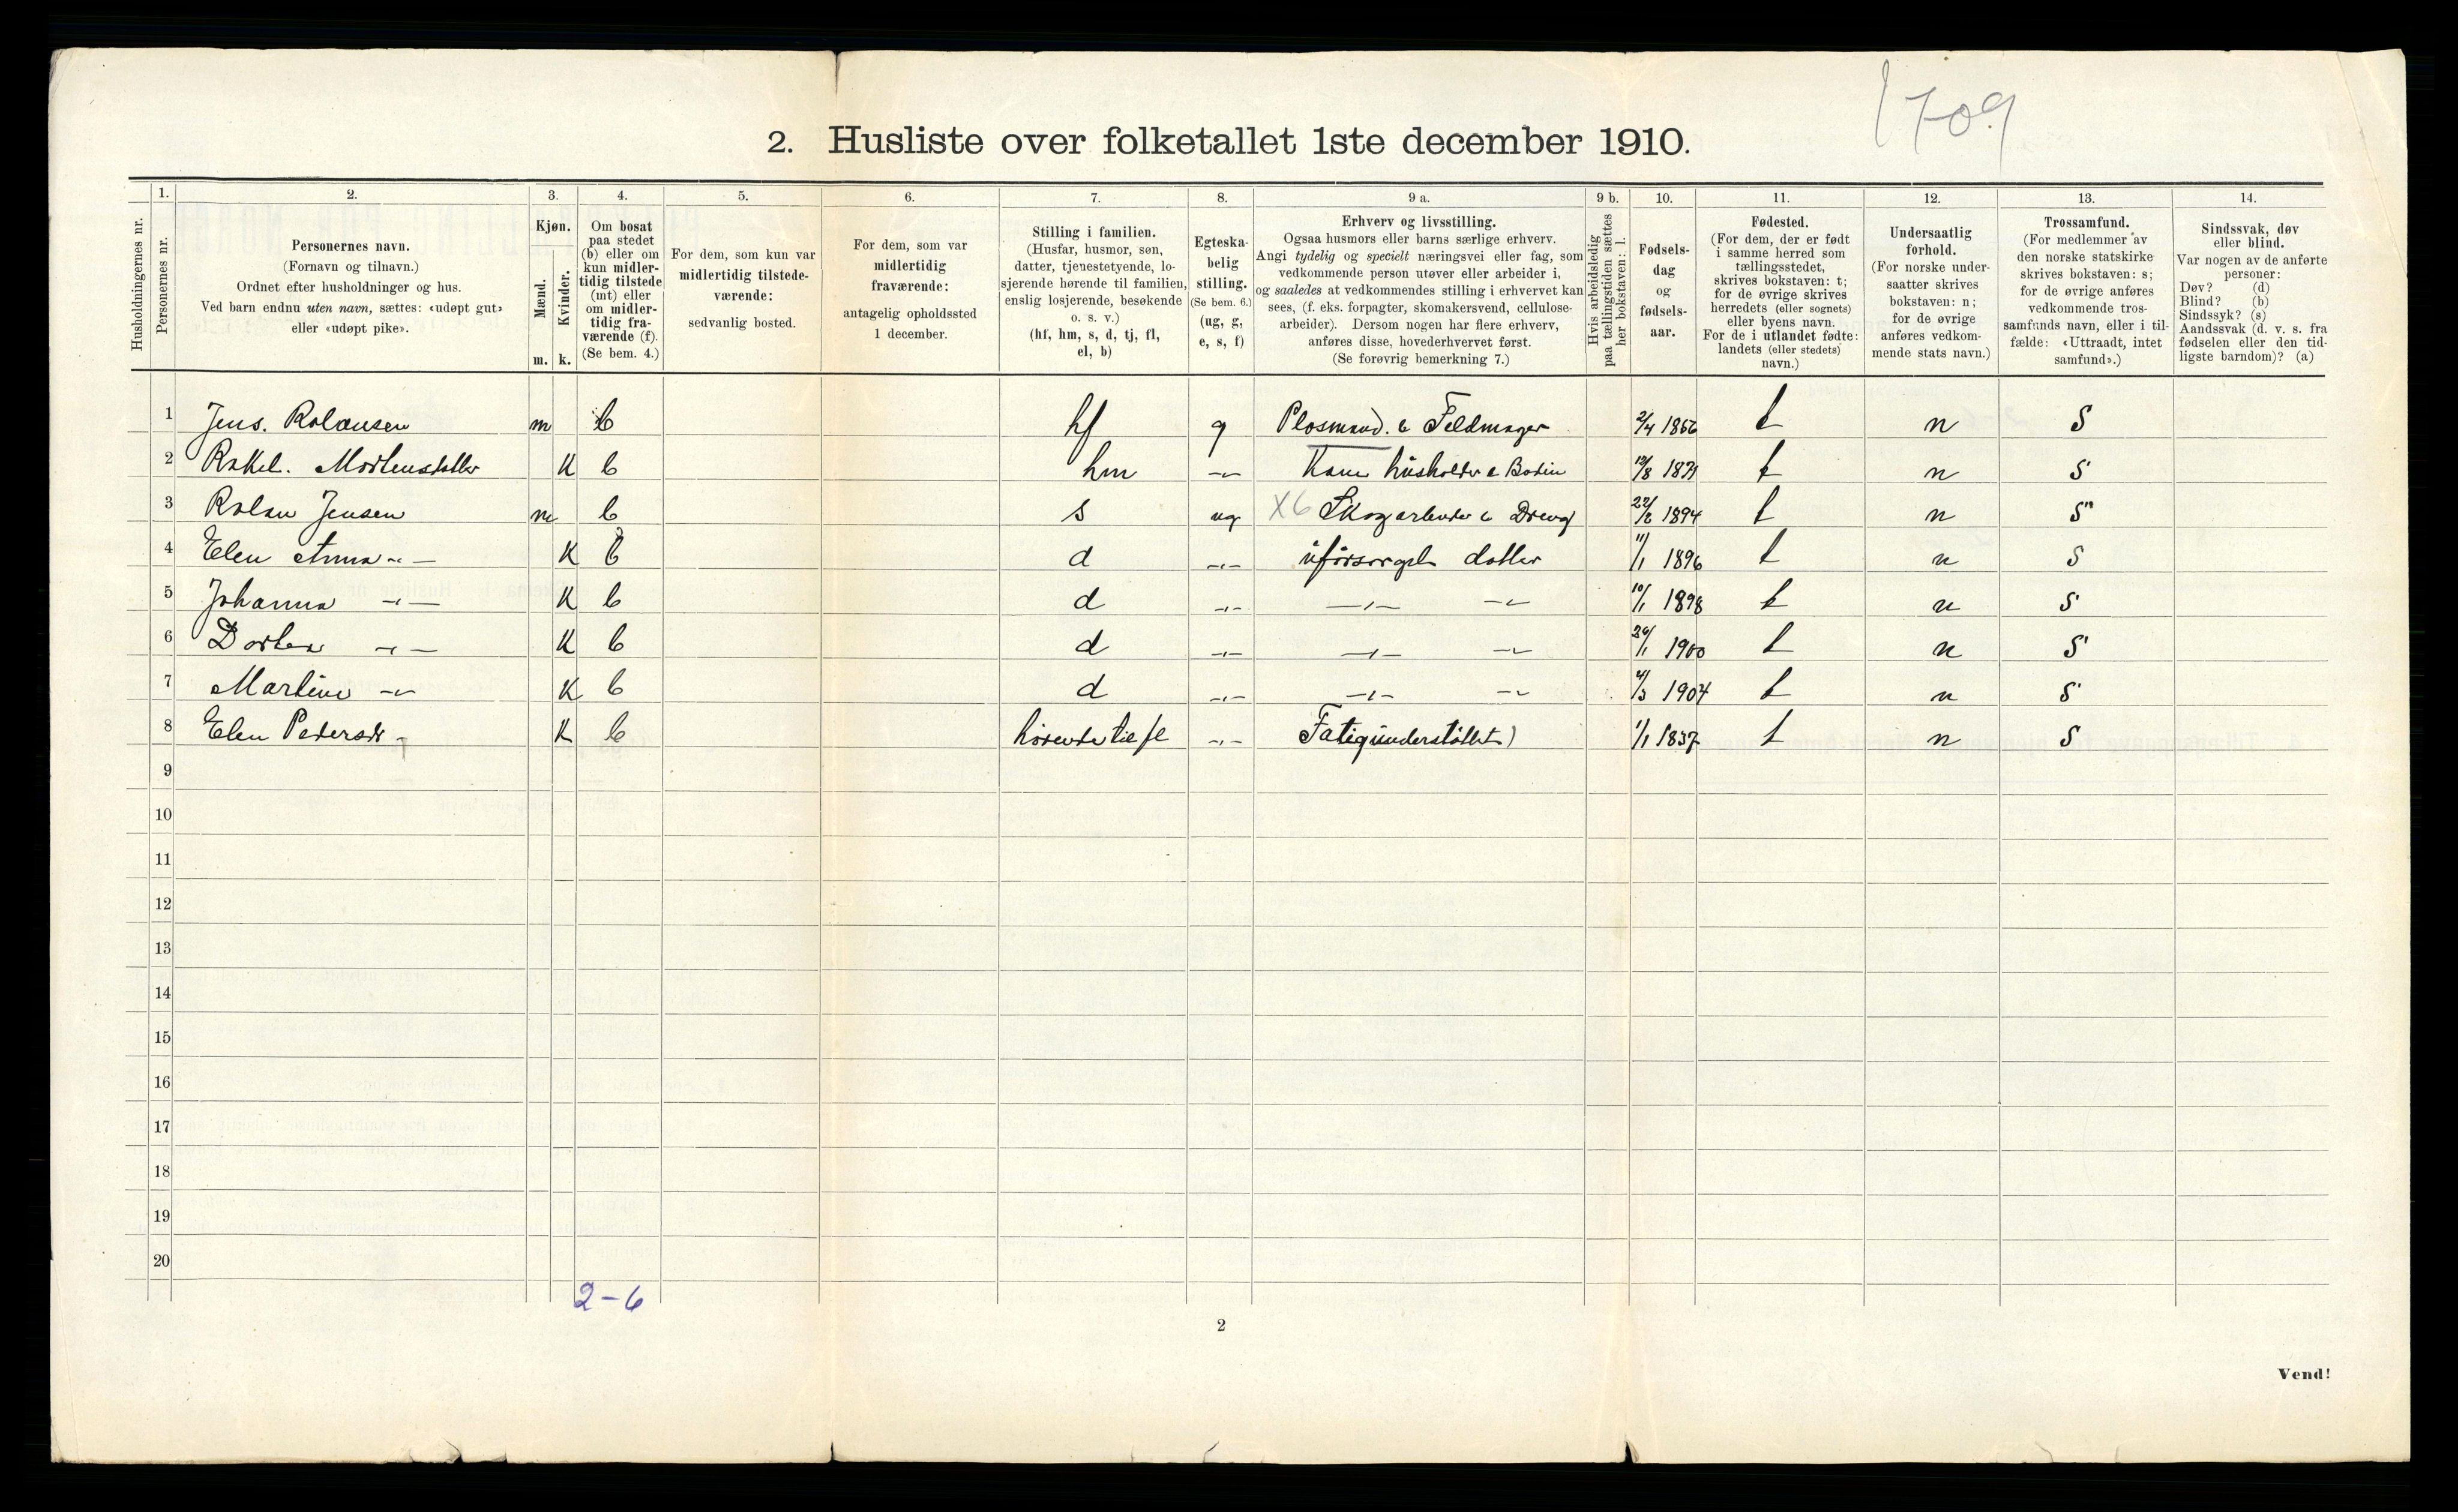 1709
2. Husliste over folketallet 1ste december 1910.
Husholdningernes nr.
1.
Personernes nr.
2.
Personernes navn.
(Fornavn og tilnavn.)
Ordnet efter husholdninger og hus.
Ved barn endnu uten navn, sættes: «udøpt gut»
eller «udøpt pike».
3.
Kjøn.
Mænd.
Kvinder.
m. k.
4.
Om bosat
paa stedet
(b) eller om
kun midler-
tidig tilstede
(mt) eller
om midler-
tidig fra-
værende (f).
(Se bem. 4.)
5.
For dem, som kun var
midlertidig tilstede-
værende:
sedvanlig bosted.
6.
For dem, som var
midlertidig
fraværende:
antagelig opholdssted
1 december.
7.
Stilling i familien.
(Husfar, husmor, søn,
datter, tjenestetyende, lo-
sjerende hørende til familien,
enslig losjerende, besøkende
o. s. v.)
(hf, hm, s, d, tj, fl,
el, b)
8.
Egteska-
belig
stilling.
(Se bem. 6.)
(ug, g,
e, s, f)
9 a.
Erhverv og livsstilling.
Ogsaa husmors eller barns særlige erhverv.
Angi tydelig og specielt næringsvei eller fag, som
vedkommende person utøver eller arbeider i,
og saaledes at vedkommendes stilling i erhvervet kan
sees, (f. eks. forpagter, skomakersvend, cellulose-
arbeider). Dersom nogen har flere erhverv,
anføres disse, hovederhvervet først.
(Se forøvrig bemerkning 7.)
9 b.
Hvis arbeidsledig
paa tællingstiden sættes
her bokstaven: l.
10.
Fødsels-
dag
og
fødsels-
aar.
11.
Fødested.
(For dem, der er født
i samme herred som
tællingsstedet,
skrives bokstaven: t;
for de øvrige skrives
herredets (eller sognets)
eller byens navn.
For de i utlandet fødte:
landets (eller stedets)
navn.)
12.
Undersaatlig
forhold.
(For norske under-
saatter skrives
bokstaven: n;
for de øvrige
anføres vedkom-
mende stats navn.)
13.
Trossamfund.
(For medlemmer av
den norske statskirke
skrives bokstaven: s;
for de øvrige anføres
vedkommende tros-
samfunds navn, eller i til-
fælde: «Uttraadt, intet
samfund».)
14.
Sindssvak, døv
eller blind.
Var nogen av de anførte
personer:
Døv? (d)
Blind? (b)
Sindssyk? (s)
Aandssvak (d. v. s. fra
fødselen eller den tid-
ligste barndom)? (a)
1 Jens. Rolansen m b hf g 2/4 t n S
2 Rakel. Mortensdatter K b hm -"- husholder t n S
3 Rolan Jensen m b s ug X6 Skogarbeider 1894 t n S
4 Elen Anna -"- K b d -"- uforsørget datter 11/1 1896 t n S
5 Johanna -"- K b d -"- -"- -"- 10/1 1898 t n S
6 Dortea -"- K b d -"- -"- -"- 1900 t n S
7 Martine -"- K b d -"- -"- -"- 1904 t n S
8 Elen Pedersdr - K b hørende til fl -"- Fatigunderstøttet 1/1 1837 t n S
9
10
11
12
13
14
15
16
17
18
19
20
2-6
2
Vend!